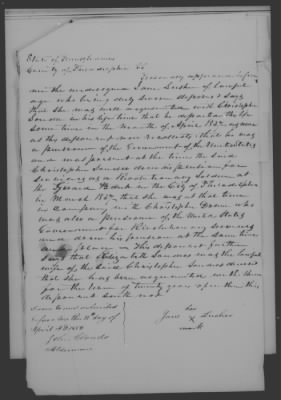 State of Pennsylvania
County of Philadelphia ss
Personally appeared before
me the undersigned Jane Lusher of lawful
age who being duly sworn deposes & says
that she was well acquainted with Christopher
in his life time that he departed this life
some time in the month of April 1842 as near
as the deponent now recollects, that he was
a pensioner of the Government of the United States
and was present at the time the said
Christopher drew his pension for
services as a Revolutionary Soldier at
the Girard Bank in the City of Philadelphia
in March 18 that he was at that time
in Company with Christopher who
was also a pensioner of the United States
Government for Revolutionary services
and drew his pension at the same time
and place This deponent further
says that Elizabeth was the lawful
wife of the said Christopher deceased
that she has been acquainted with them
for the term of twenty years upon this
deponent saith not
Sworn to and subscribed
before me the day of
April AD 18
Alderman
her
Jane X Lusher
mark